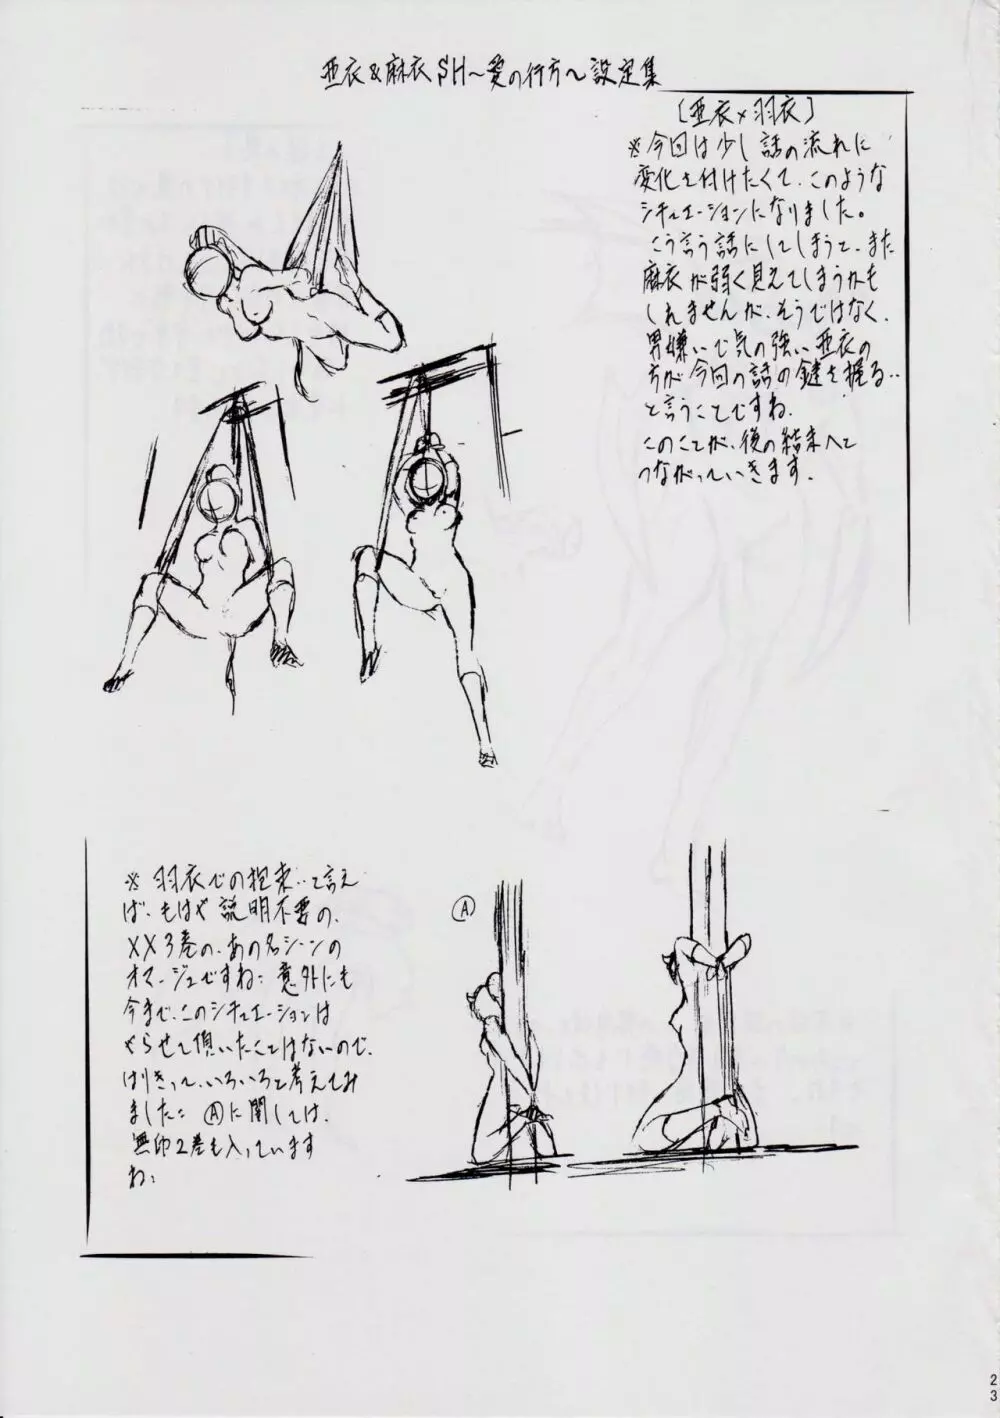 亜衣&麻衣SH〜愛の行方〜設定集
[亜衣×羽衣]
※今回は少し話の流れに
変化を付けたくて、このような
シチュエーションになりました。
こう言う話にしてしまうと、また
麻衣が弱く見えてしまうかも
しれませんが、そうではなく、
男嫌いで気の強い亜衣の
方が今回の話の鍵を握る‥
と言うことですね。
このことが、後の結末へと
つながっていきます。
※羽衣での拘束‥と言え
ば、もはや説明不要の、
XX3巻の、あの名シーンの
オマージュですね: 意外にも
今まで、このシチュエーションは
やらせて頂いたことはないので、
はりきって、いろいろと考えてみ
ました: Ⓐに関しては、
無印2巻も入っています
ね:
Ⓐ
23